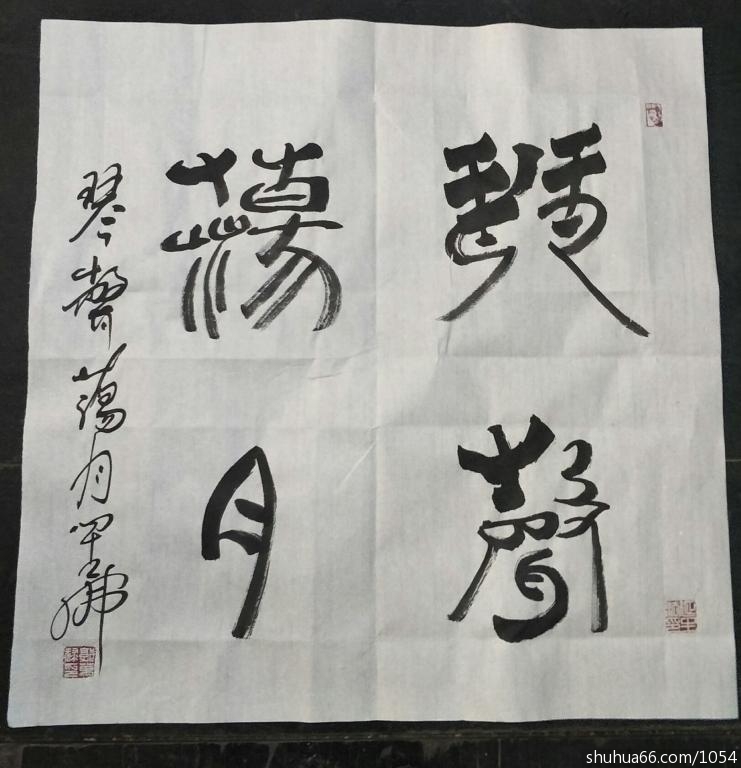 琴聲
蕩月
琴聲蕩月
shuhua66.com/1054